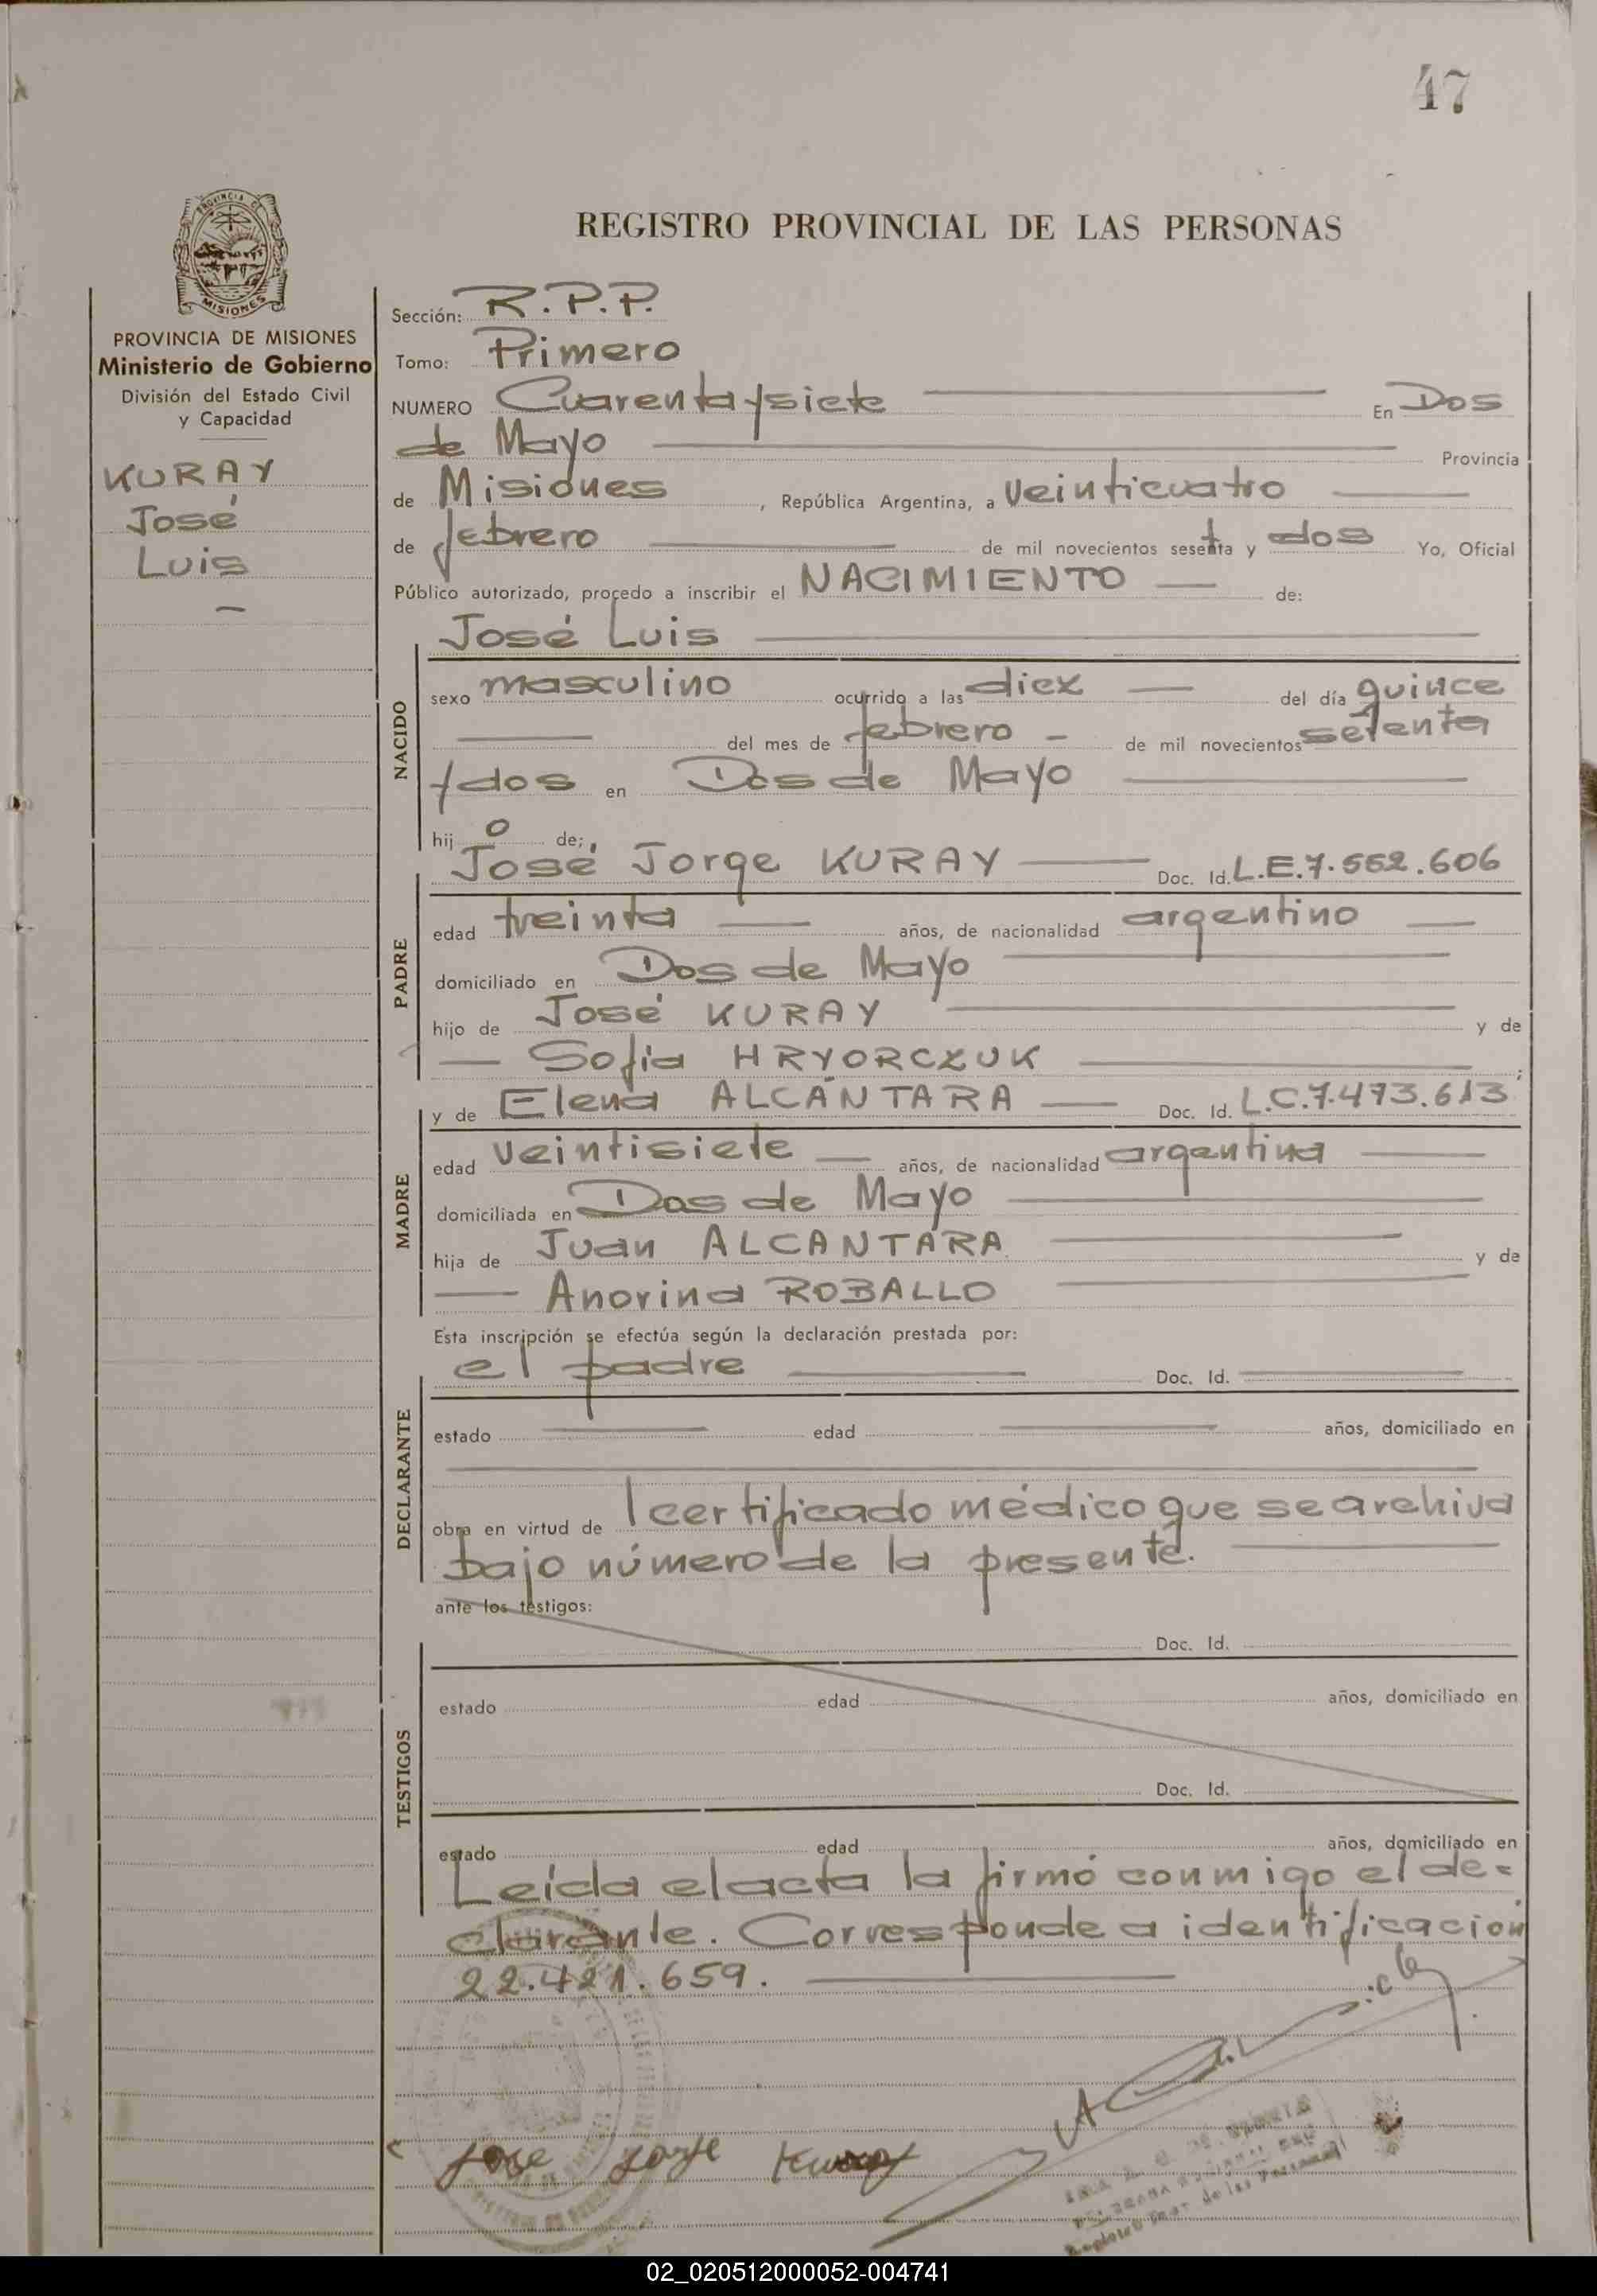 47
PROVINCIA DE
MISIONES
REGISTRO PROVINCIAL DE LAS PERSONAS
PROVINCIA DE MISIONES
Ministerio de Gobierno
División del Estado Civil
y Capacidad
KURAY
José
Luis
Sección: R.P.P.
Tomo: Primero
NUMERO Cuarentaysiete En Dos
de Mayo Provincia
de Misiones, República Argentina, a veinticuatro
de febrero de mil novecientos setenta y dos Yo, Oficial
Público autorizado, procedo a inscribir el NACIMIENTO de:
José Luis
NACIDO
sexo masculino ocurrido a las diez del día quince
del mes de febrero de mil novecientos setenta
y dos en Dos de Mayo
hijo de;
José Jorge KURAY Doc. Id. L.E.7.552.606
PADRE
edad treinta años, de nacionalidad argentino
domiciliado en Dos de Mayo
hijo de José KURAY y de
Sofia HRYORCZUK ;
y de Elena ALCÁNTARA Doc. Id. L.C.7.473.613
MADRE
edad veintisiete años, de nacionalidad argentina
domiciliada en Dos de Mayo
hija de Juan ALCANTARA y de
Anorina ROBALLO
Esta inscripción se efectúa según la declaración prestada por:
el padre Doc. Id.
DECLARANTE
estado edad años, domiciliado en
obra en virtud de l certificado médico que se archiva
bajo número de la presente.
ante los testigos:
Doc. Id.
TESTIGOS
estado edad años, domiciliado en
Doc. Id.
estado edad años, domiciliado en
Leída el acta la firmó conmigo el de=
clarante. Corresponde a identificación
22.421.659.
Jose Jorge Kuray
02_020512000052-004741